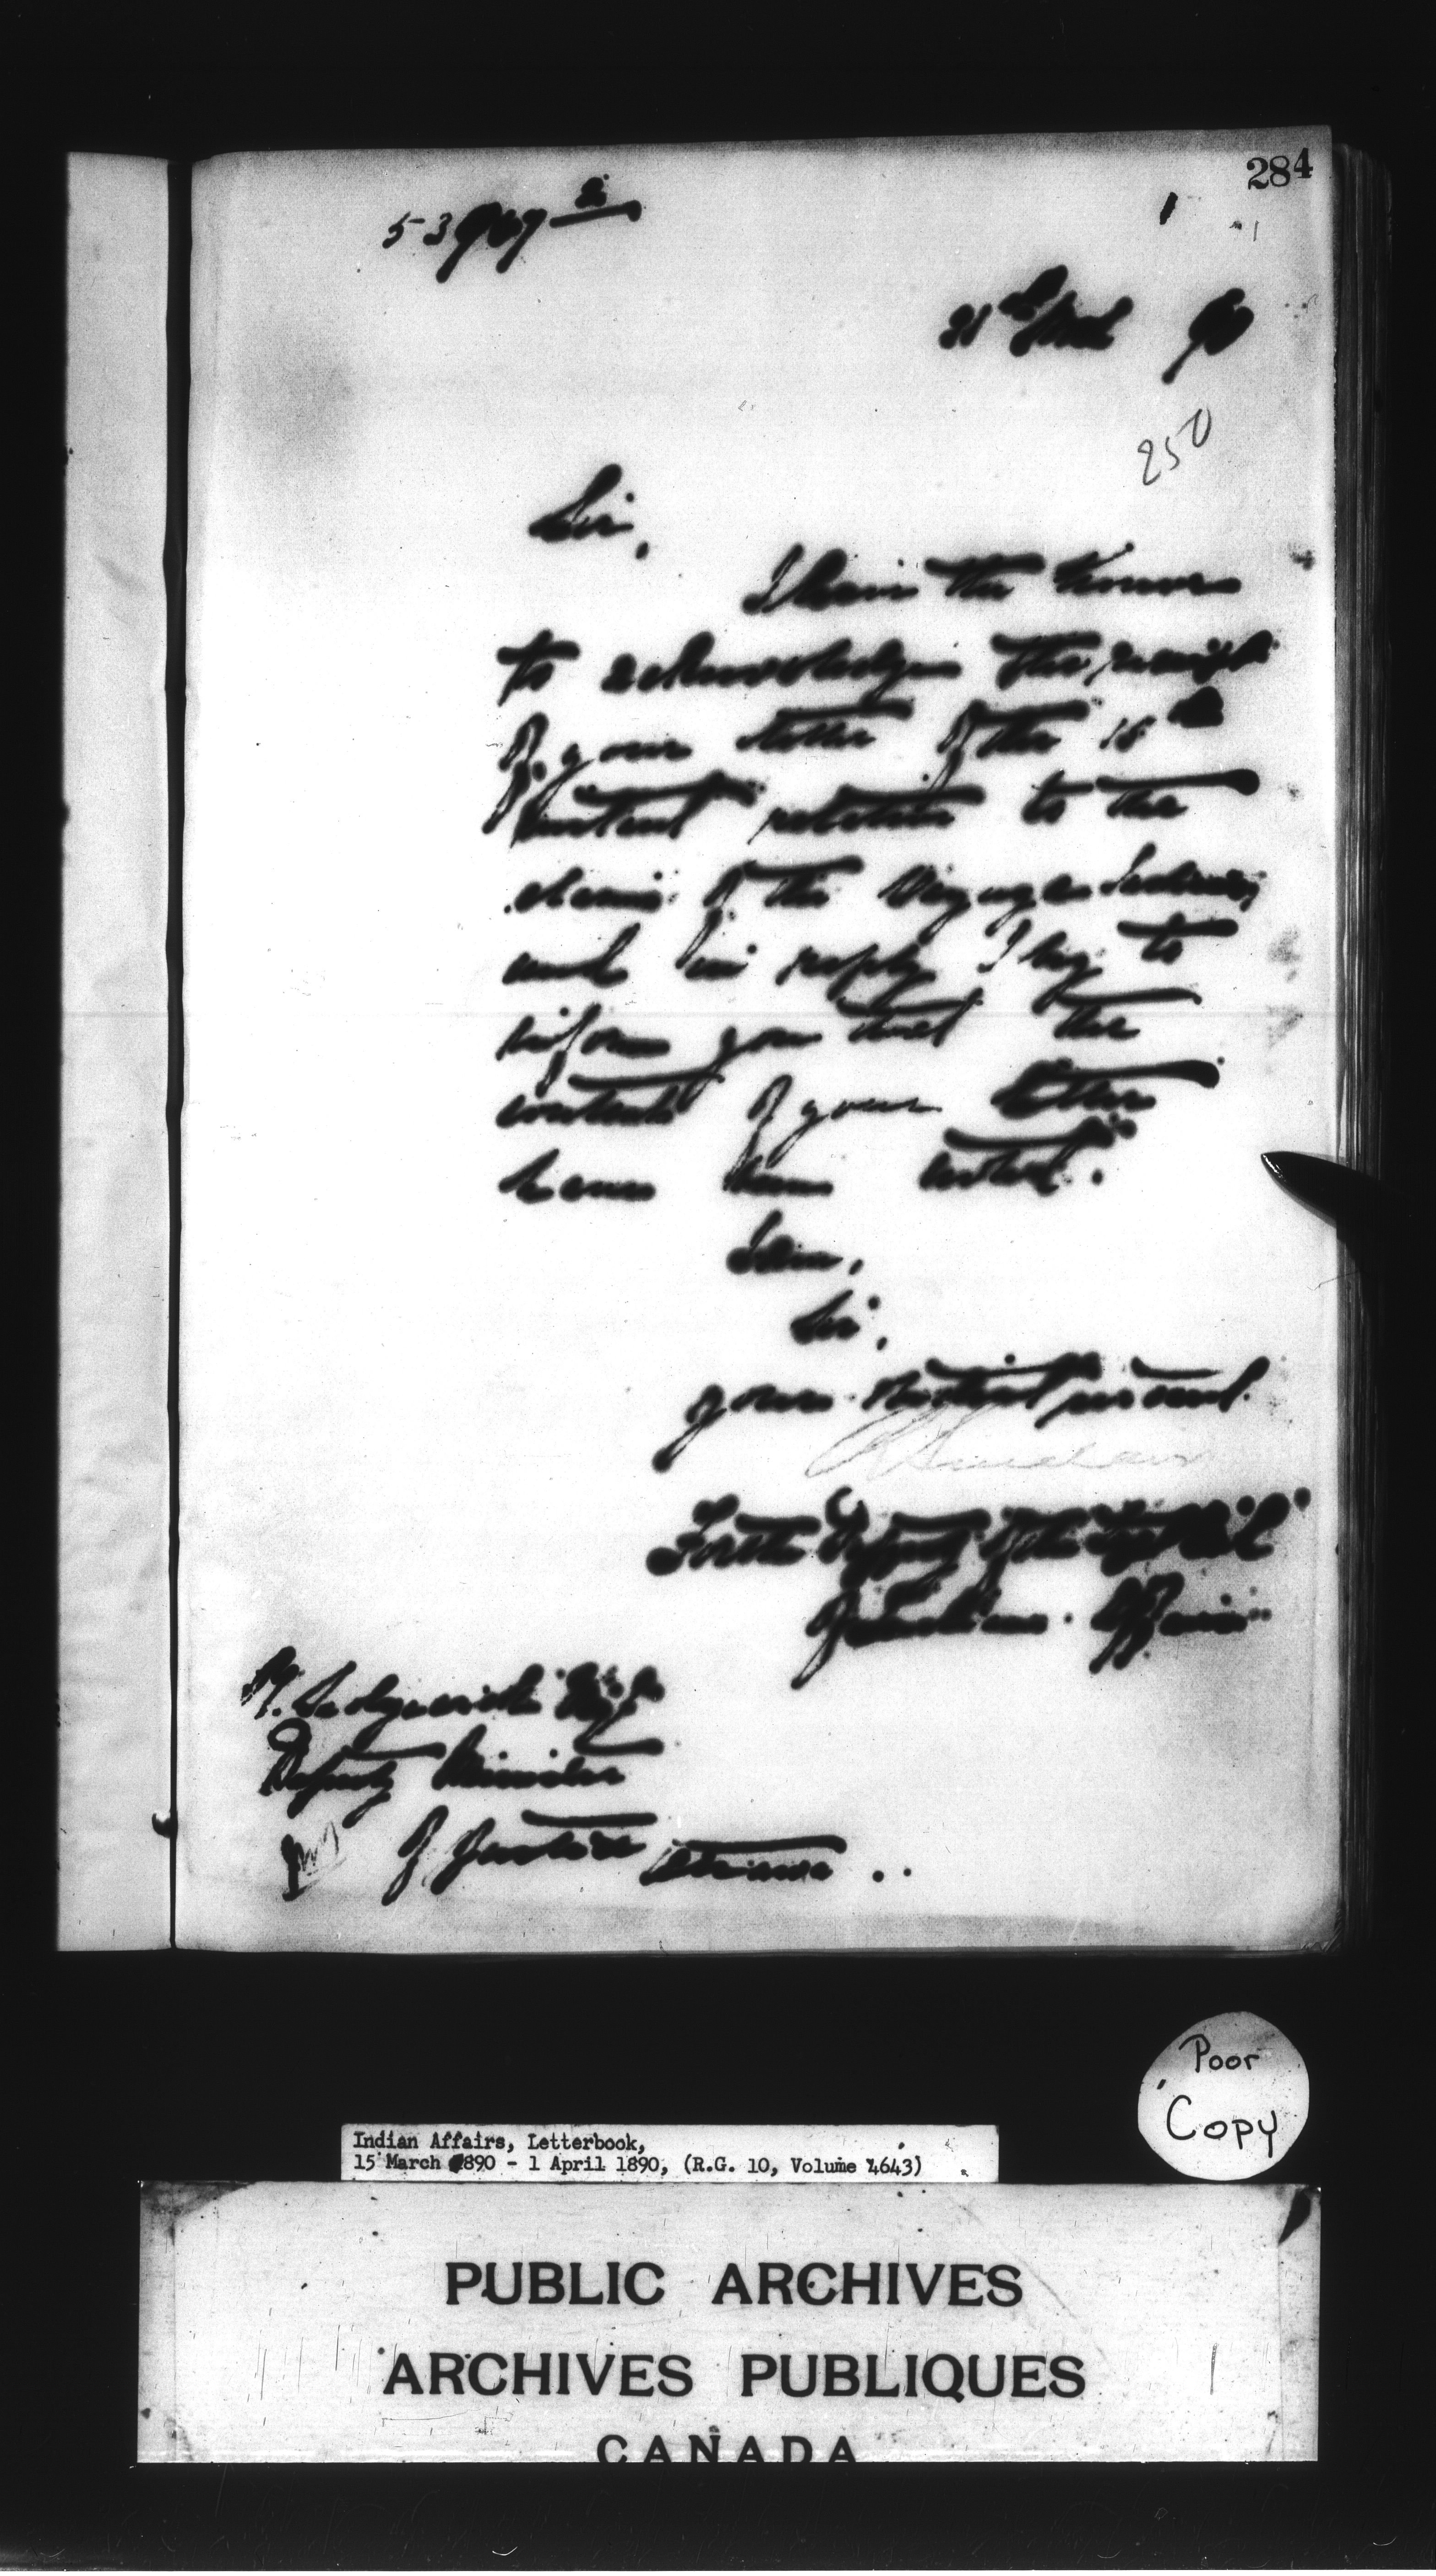 284
250
Sir,
I have the honour
to acknowledge the receipt
of your letter of the 18th
instant relative to the
claim of the Indians
and in reply I beg to
inform you that the
contents of your letter
have been noted.
I am,
Sir,
your obedient servant.
R Sinclair
For the Deputy of the Supt Genl
of Indian Affairs
R. Sedgewick Esq.
Deputy Minister
of Justice Ottawa ..
Poor
Copy
Indian Affairs, Letterbook,
15 March 1890 - 1 April 1890, (R.G. 10, Volume 4643)
PUBLIC ARCHIVES
ARCHIVES PUBLIQUES
CANADA